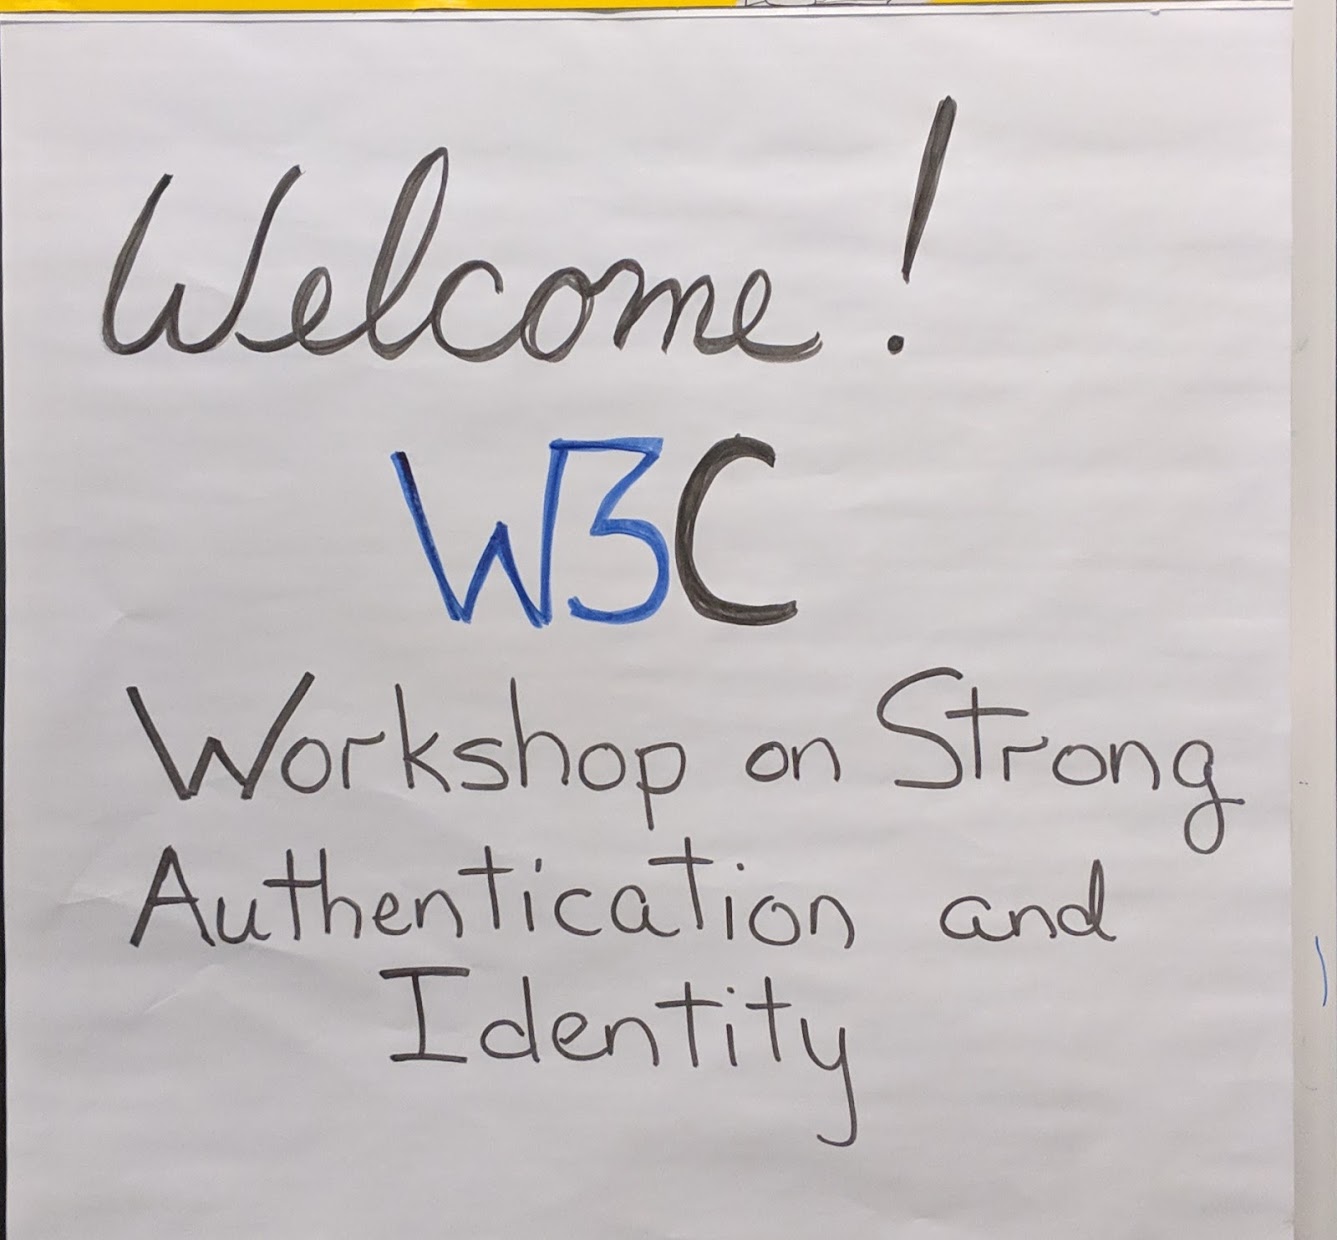 Welcome!
W3C
Workshop on Strong
Authentication and
Identity